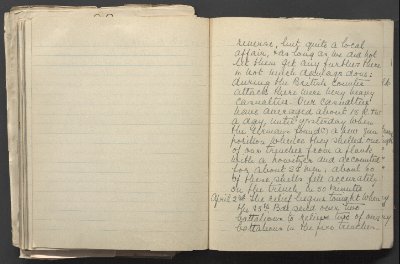 reverse, but quite a local
affair, & as long as we did not
let them get any further there
is not much damage done:
during the British Counter
attack there were very heavy
casualties. Our casualties
have averaged about 15 to
a day, until yesterday when
the Germans found a new gun
position whence they shelled one
of our trenches from a flank,
with a howitzer and accounted
for about 28 men; about 50
of these shells fell accurately
on the trench, in 30 minutes
April 2nd. The relief begins tonight when
the 15th Bde send over two
battalions to relieve two of my
battalions in the fire trenches.